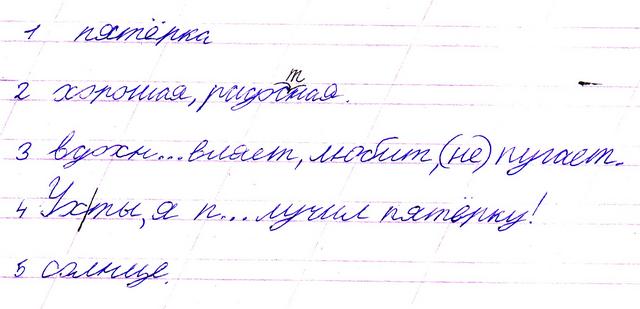 1 пятёрка
2 хорошая, радостная.
3 вдохн...вляет, любит, (не) пугает.
4 Ух/ты, я п...лучил пятёрку!
5 солнце.